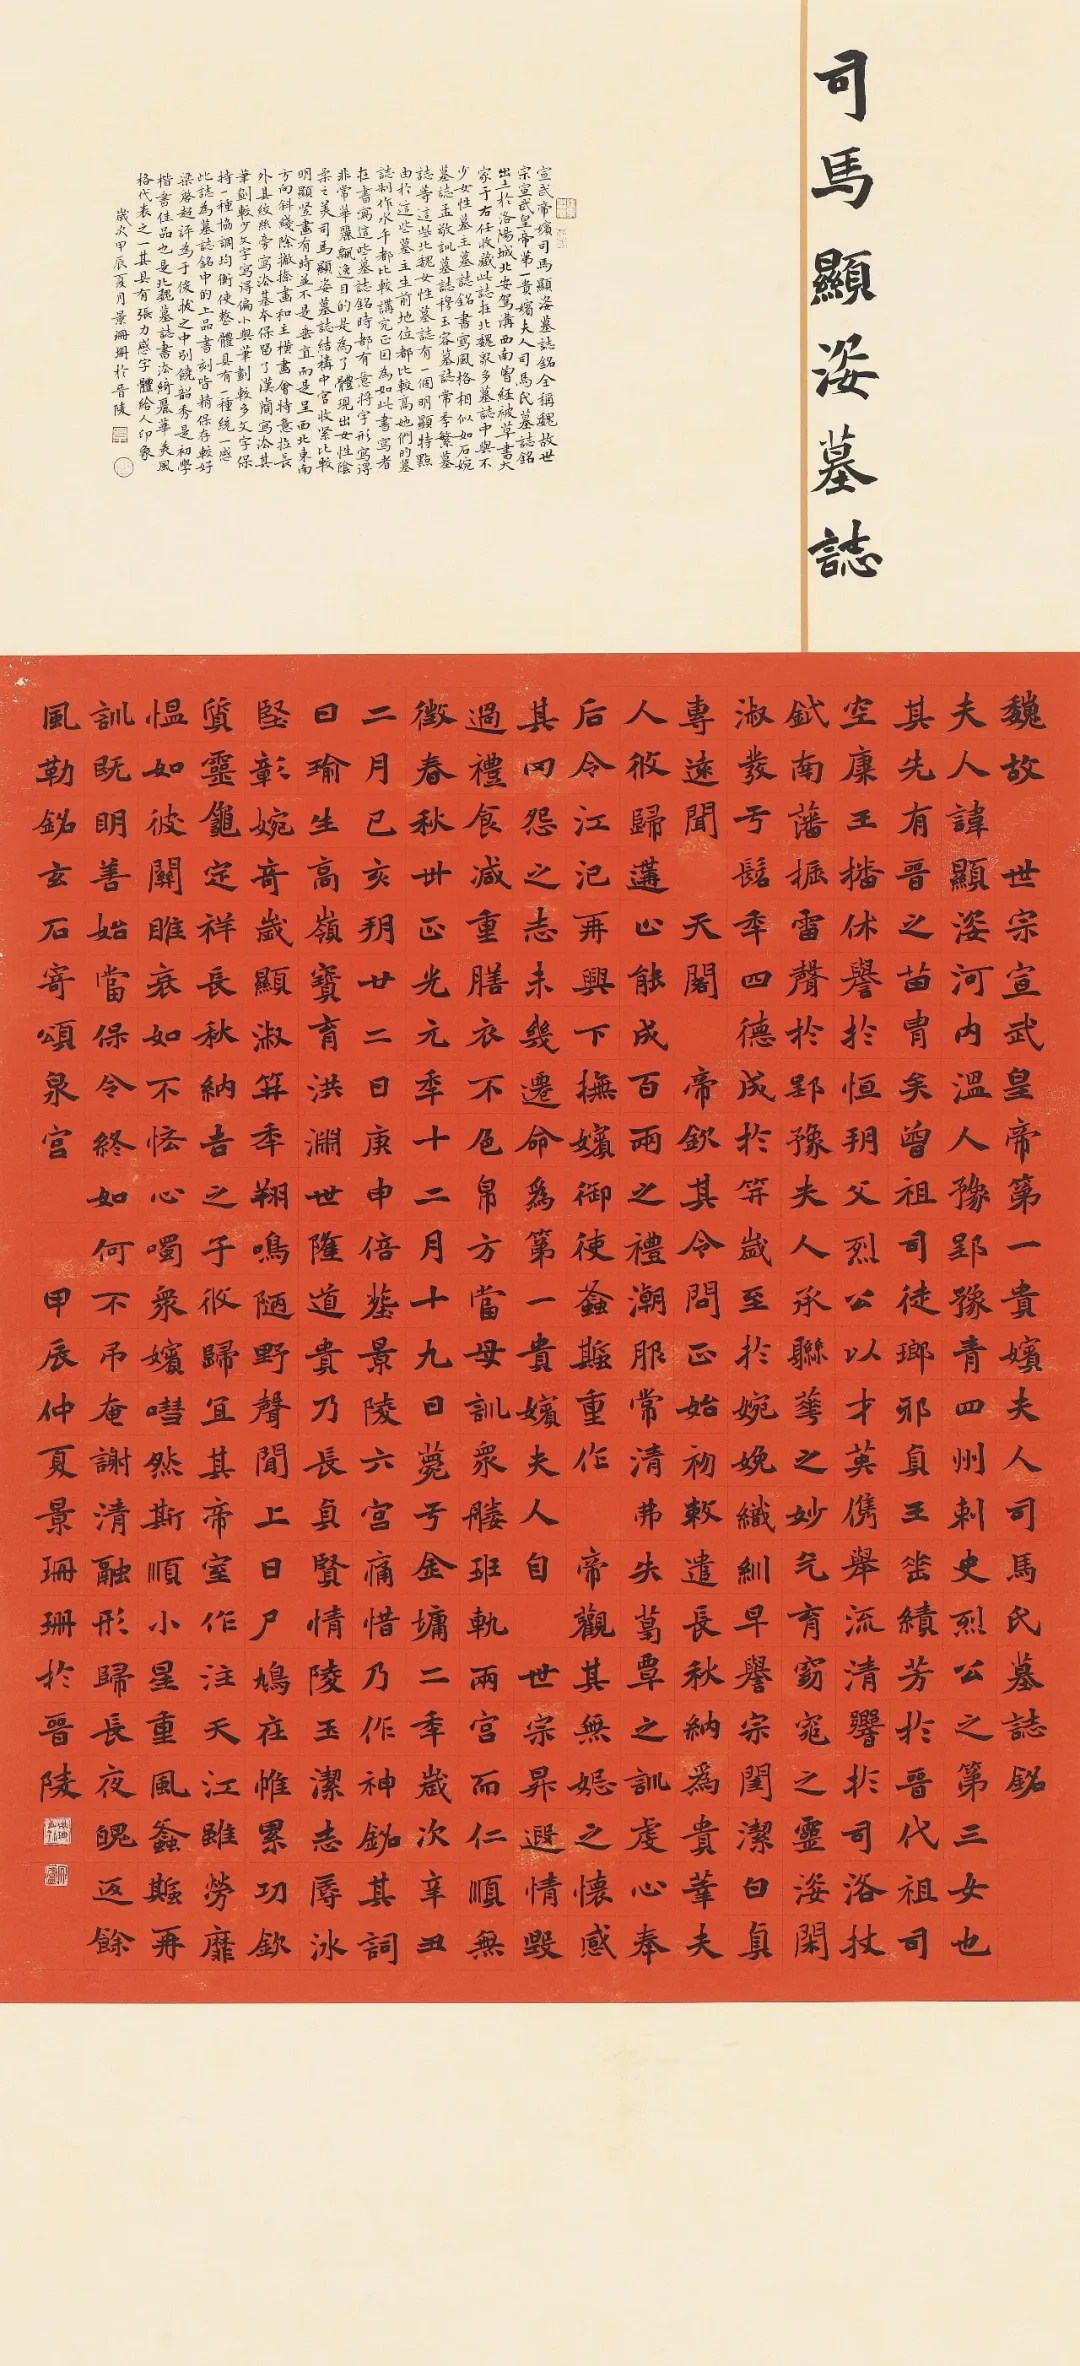 司馬顯姿墓誌
宣武帝嬪司馬顯姿墓誌銘全稱魏故世
宗宣武皇帝第一貴嬪夫人司馬氏墓誌銘
出土於洛陽城北安駕溝西南曾經被草書大
家于右任收藏此誌在北魏眾多墓誌中與不
少女性墓主墓誌銘書寫風格相似如石婉
墓誌孟敬訓墓誌穆玉容墓誌常季繁墓
誌等這些北魏女性墓誌有一個明顯特點
由於這些墓主生前地位都比較高她們的墓
誌制作水平都比較講究正因為如此書寫者
在書寫這些墓誌銘時都有意將字形寫得
非常華麗飄逸目的是為了體現出女性陰
柔之美司馬顯姿墓誌結構中宮收緊比較
明顯竖畫有時並不是垂直而是呈西北東南
方向斜綫除撇捺畫和主橫畫會特意拉長
外其絞絲旁寫法基本保留了漢簡寫法其
筆劃較少文字寫得偏小與筆劃較多文字保
持一種協調均衡使整體具有一種統一感
此誌為墓誌銘中的上品書刻皆精保存較好
梁啓超評為于俊拔之中別饒韶秀是初學
楷書佳品也是北魏墓誌書法綺麗華美風
格代表之一其具有張力感字體給人印象
歲次甲辰夏月景珊珊於晉陵
魏故世宗宣武皇帝第一貴嬪夫人司馬氏墓誌銘
夫人諱顯姿河內溫人豫郢豫青四州刺史烈公之第三女也
其先有晉之苗胄矣曾祖司徒瑯邪貞王垂績芳於晉代祖司
空康王播休譽於恒朔父烈公以才英儁舉流清響於司洛杖
鉞南藩振雷聲於郢豫夫人承聯華之妙气育窈窕之靈姿閑
淑發于髫年四德成於笄歲至於婉娩織紃早譽宗閨潔白貞
專遠聞天閣帝欽其令問正始初敕遣長秋納為貴華夫
人攸歸遘止能成百兩之禮潮服常清弗失葛覃之訓虔心奉
后令江汜再興下撫嬪御使螽斯重作帝觀其無妬之懷感
其罔怨之志未幾遷命為第一貴嬪夫人自世宗昇遐情毀
過禮食減重膳衣不色帛方當母訓眾媵班軌兩宮而仁順無
徵春秋卅正光元年十二月十九日薨于金墉二年歲次辛丑
二月己亥朔廿二日庚申倍葬景陵六宮痛惜乃作神銘其詞
曰瑜生高嶺寶育洪淵世隆道貴乃長貞賢情陵玉潔志辱冰
堅彰婉竒歲顯淑笄年翔鳴陋野聲聞上日尸鳩在惟累功欽
質靈龜定祥長秋納吉之子攸歸宜其帝室作注天江雖勞靡
愠如彼關雎哀如不惍心囑眾嬪嘒然斯順小星重風螽斯再
訓既明善始當保令終如何不吊奄謝清融形歸長夜魄返餘
風勒銘玄石寄頌泉宮
甲辰仲夏景珊珊於晉陵